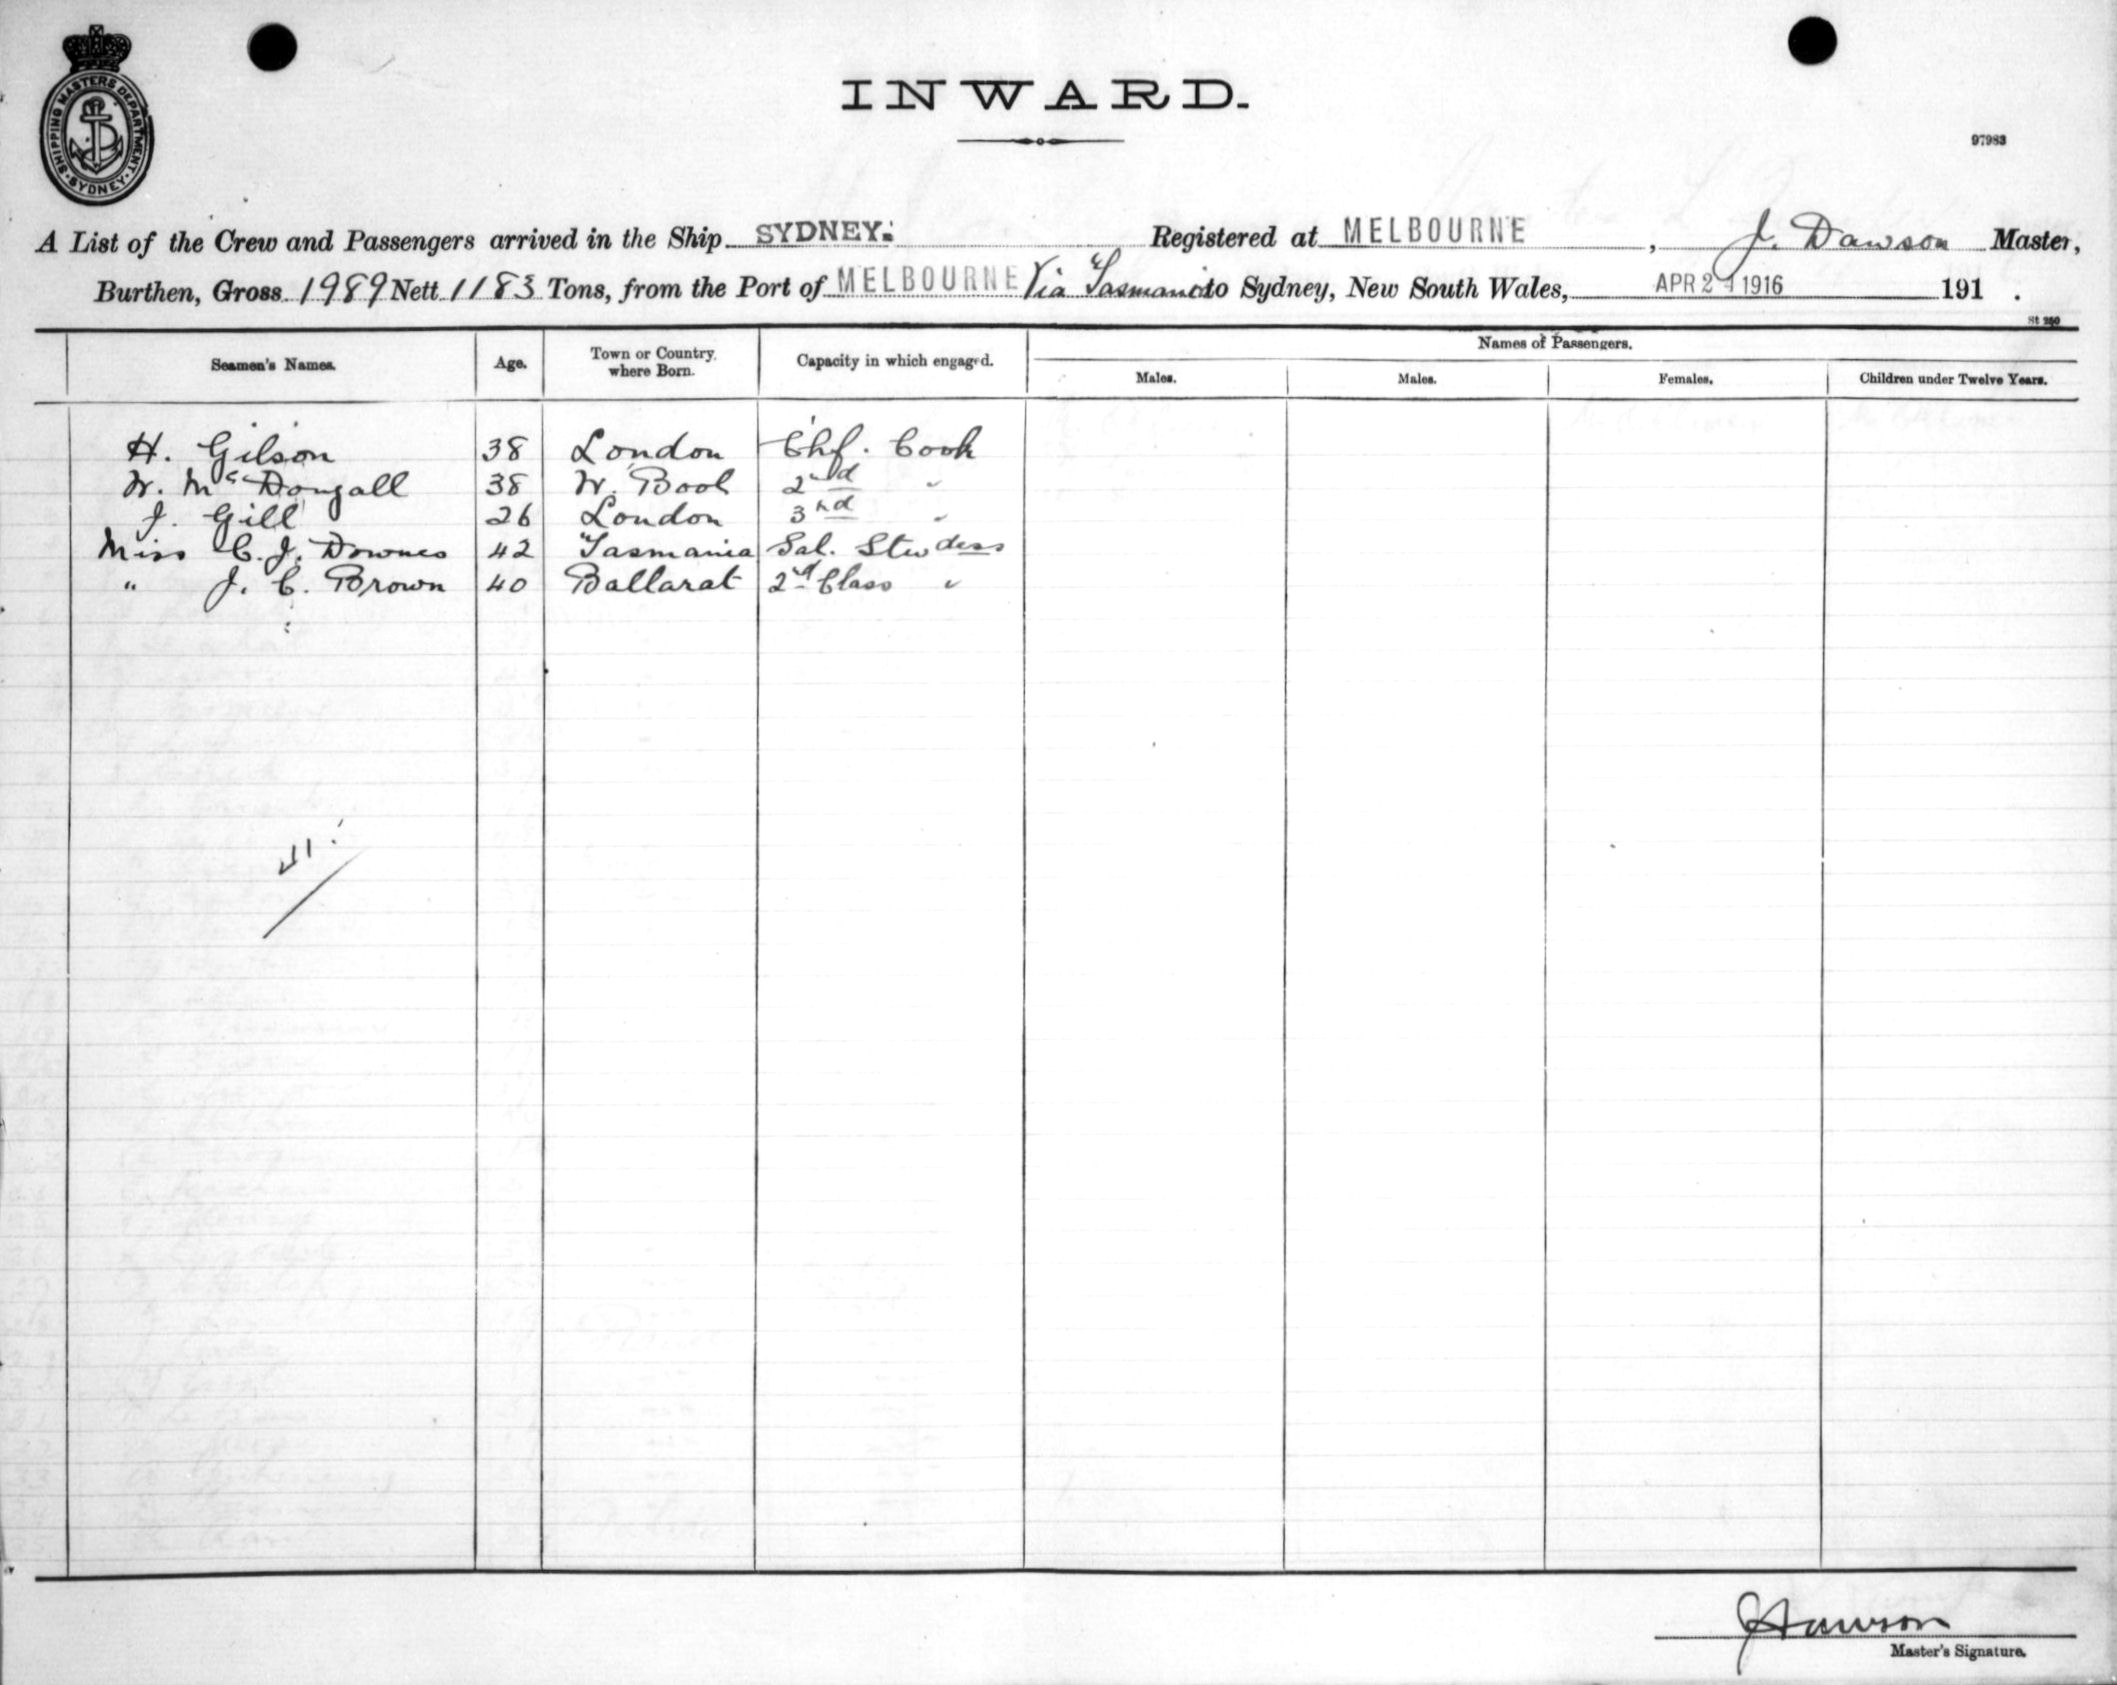 SHIPPING MASTERS DEPARTMENT. SYDNEY
INWARD.
97983
A List of the Crew and Passengers arrived in the Ship SYDNEY. Registered at MELBOURNE, J. Dawson Master,
Burthen, Gross 1989 Nett 1183 Tons, from the Port of MELBOURNE Via Tasmania to Sydney, New South Wales, APR 24 1916 191 .
St 250
Seamen's Names. Age. Town or Country where Born. Capacity in which engaged. Names of Passengers.
Males. Males. Females. Children under Twelve Years.
H. Gilson 38 London Chf. Cook
W. McDougall 38 W. Bool 2nd "
J. Gill 26 London 3rd "
Miss C. J. Downes 42 Tasmania Sal. Stewdess
" J. C. Brown 40 Ballarat 2nd Class "
JDawson
Master's Signature.